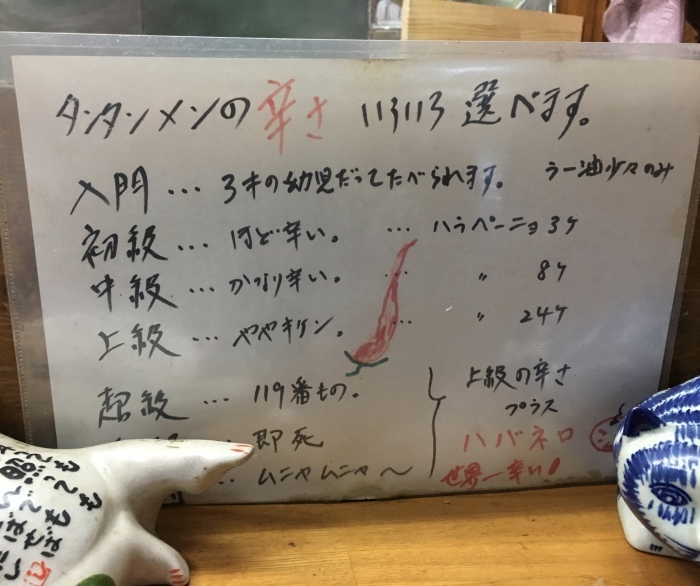 タンタンメンの辛さ いろいろ選べます。
入門 … 3才の幼児だってたべられます。 ラー油少々のみ
初級 … ほど辛い。 … ハラペーニョ 3ケ
中級 … かなり辛い。 … 〃 8ケ
上級 … ややキケン。 … 〃 24ケ
超級 … 119番もの。
… 即死
… ムニャムニャ〜
上級の辛さ
プラス
ハバネロ
世界一辛い!